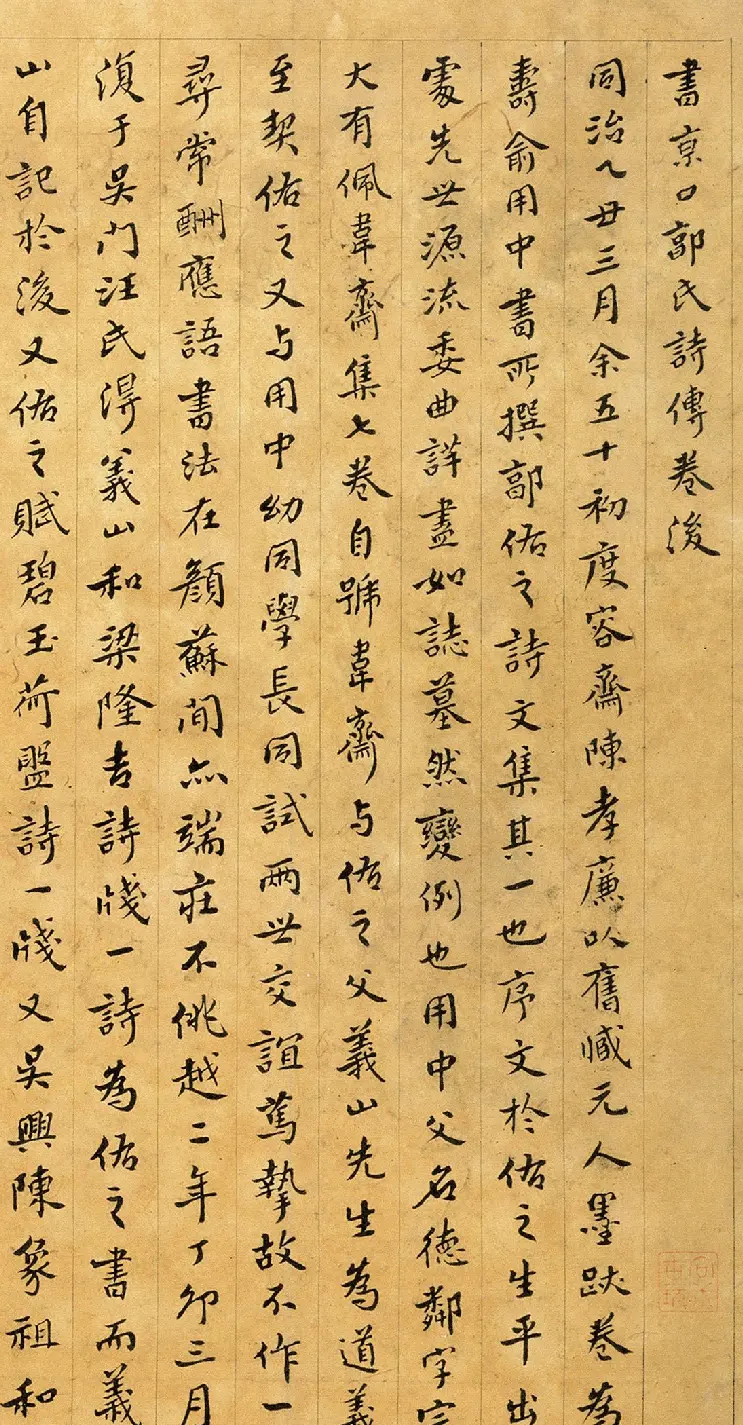 書京口郭氏詩傳卷後
同治乙丑三月余五十初度容齋陳孝廉以舊臧元人墨跋卷為
壽俞用中書所撰郭佑之詩文集其一也序文於佑之生平出
處先世源流委曲詳盡如誌墓然變例也用中父名德鄰字宗
大有佩韋齋集七卷自號韋齋与佑之父義山先生為道義
至契佑之又与用中幼同學長同試兩世交誼篤摯故不作一
尋常酬應語書法在顏蘇間亦端莊不佻越二年丁卯三月
復于吳門汪氏得義山和梁隆吉詩牋一詩為佑之書而義
山自記於後又佑之賦碧玉荷盤詩一牋又吳興陳象祖和